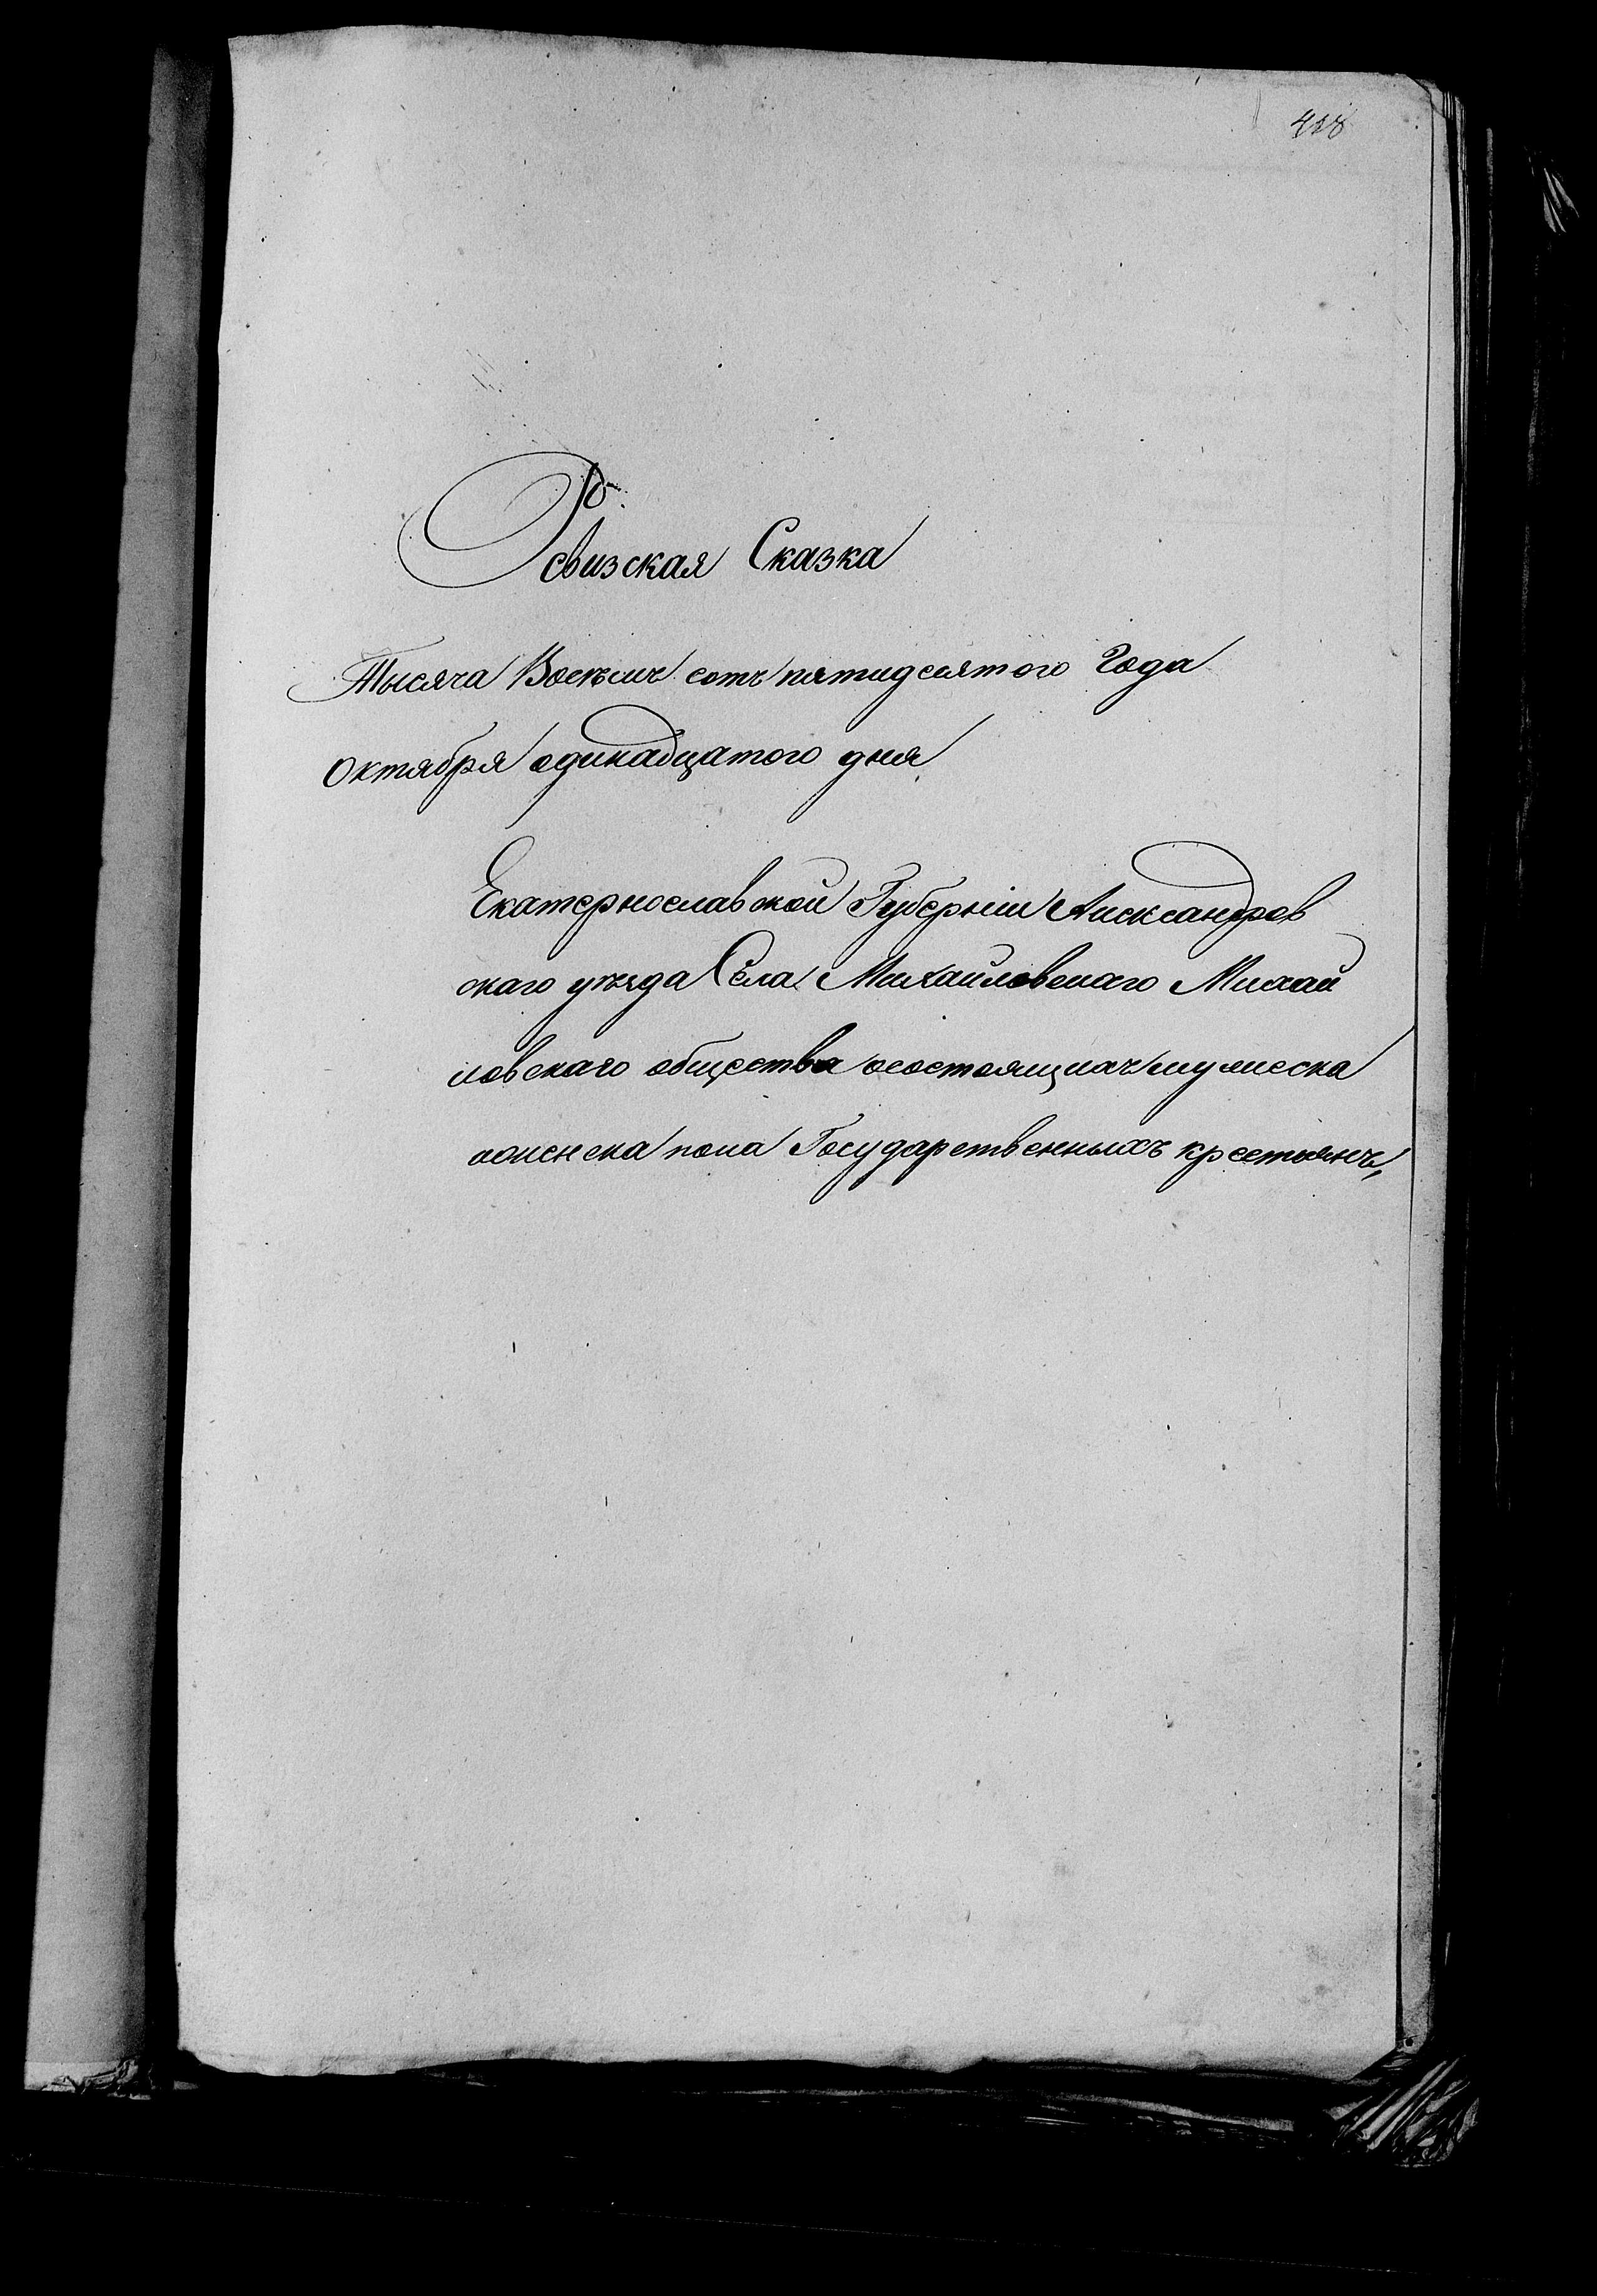 418
Ревизская Сказка
Тысяча Восемъ сотъ пятидесятого Года
Октября одинадцатого дня
Екатернославской Губерніи Александров
скаго уезда Села Михайловскаго Михай
ловскаго общества осостоящихъ мужеска
иженска пола Государственныхъ крестьянъ,,